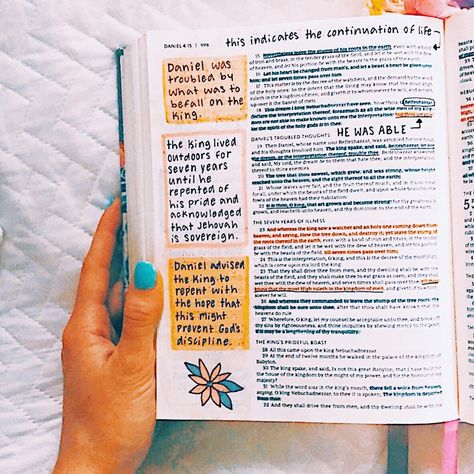 DANIEL 4:15 | 996
this indicates the continuation of life
Daniel was
troubled by
what was to
befall on the
king.
the king lived
outdoors for
seven years
until he
repented of
his pride and
acknowledged
that Jehovah
is sovereign.
Daniel advised
the King to
repent with
the hope that
this might
prevent God's
discipline.
15 Nevertheless leave the stump of his roots in the earth, even with a band
of iron and brass, in the tender grass of the field; and let it be wet with the dew
of heaven, and let his portion be with the beasts in the grass of the earth:
16 Let his heart be changed from man's, and let a beast's heart be given unto
him; and let seven times pass over him.
17 This matter is by the decree of the watchers, and the demand by the word
of the holy ones: to the intent that the living may know that the most High
ruleth in the kingdom of men, and giveth it to whomsoever he will, and setteth
up over it the basest of men.
18 This dream I king Nebuchadnezzar have seen. Now thou, O Belteshazzar,
declare the interpretation thereof, forasmuch as all the wise men of my kingdom
are not able to make known unto me the interpretation: but thou art able;
for the spirit of the holy gods is in thee.
DANIEL'S TROUBLED THOUGHTS
HE WAS ABLE
19 Then Daniel, whose name was Belteshazzar, was astonied for one hour,
and his thoughts troubled him. The king spake, and said, Belteshazzar, let not
the dream, or the interpretation thereof, trouble thee. Belteshazzar answered
and said, My lord, the dream be to them that hate thee, and the interpretation
thereof to thine enemies.
20 The tree that thou sawest, which grew, and was strong, whose height
reached unto the heaven, and the sight thereof to all the earth;
21 Whose leaves were fair, and the fruit thereof much, and in it was meat
for all; under which the beasts of the field dwelt, and upon whose branches the
fowls of the heaven had their habitation:
22 It is thou, O king, that art grown and become strong: for thy greatness is
grown, and reacheth unto heaven, and thy dominion to the end of the earth.
THE SEVEN YEARS OF ILLNESS
23 And whereas the king saw a watcher and an holy one coming down from
heaven, and saying, Hew the tree down, and destroy it; yet leave the stump of
the roots thereof in the earth, even with a band of iron and brass, in the tender
grass of the field; and let it be wet with the dew of heaven, and let his portion be
with the beasts of the field, till seven times pass over him;
24 This is the interpretation, O king, and this is the decree of the most High,
which is come upon my lord the king:
25 That they shall drive thee from men, and thy dwelling shall be with the
beasts of the field, and they shall make thee to eat grass as oxen, and they shall
wet thee with the dew of heaven, and seven times shall pass over thee, till thou
know that the most High ruleth in the kingdom of men, and giveth it to whom-
soever he will.
26 And whereas they commanded to leave the stump of the tree roots; thy
kingdom shall be sure unto thee, after that thou shalt have known that the
heavens do rule.
27 Wherefore, O king, let my counsel be acceptable unto thee, and break off
thy sins by righteousness, and thine iniquities by shewing mercy to the poor;
if it may be a lengthening of thy tranquillity.
THE KING'S PRIDEFUL BOAST
28 All this came upon the king Nebuchadnezzar.
29 At the end of twelve months he walked in the palace of the kingdom of
Babylon.
30 The king spake, and said, Is not this great Babylon, that I have built for
the house of the kingdom by the might of my power, and for the honour of my
majesty?
31 While the word was in the king's mouth, there fell a voice from heaven,
saying, O king Nebuchadnezzar, to thee it is spoken; The kingdom is departed
from thee.
32 And they shall drive thee from men, and thy dwelling shall be with the